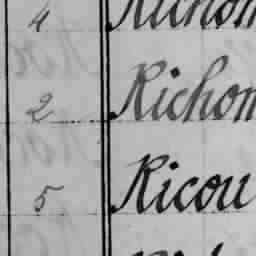 4 Richom
2 Richom
5 Ricou